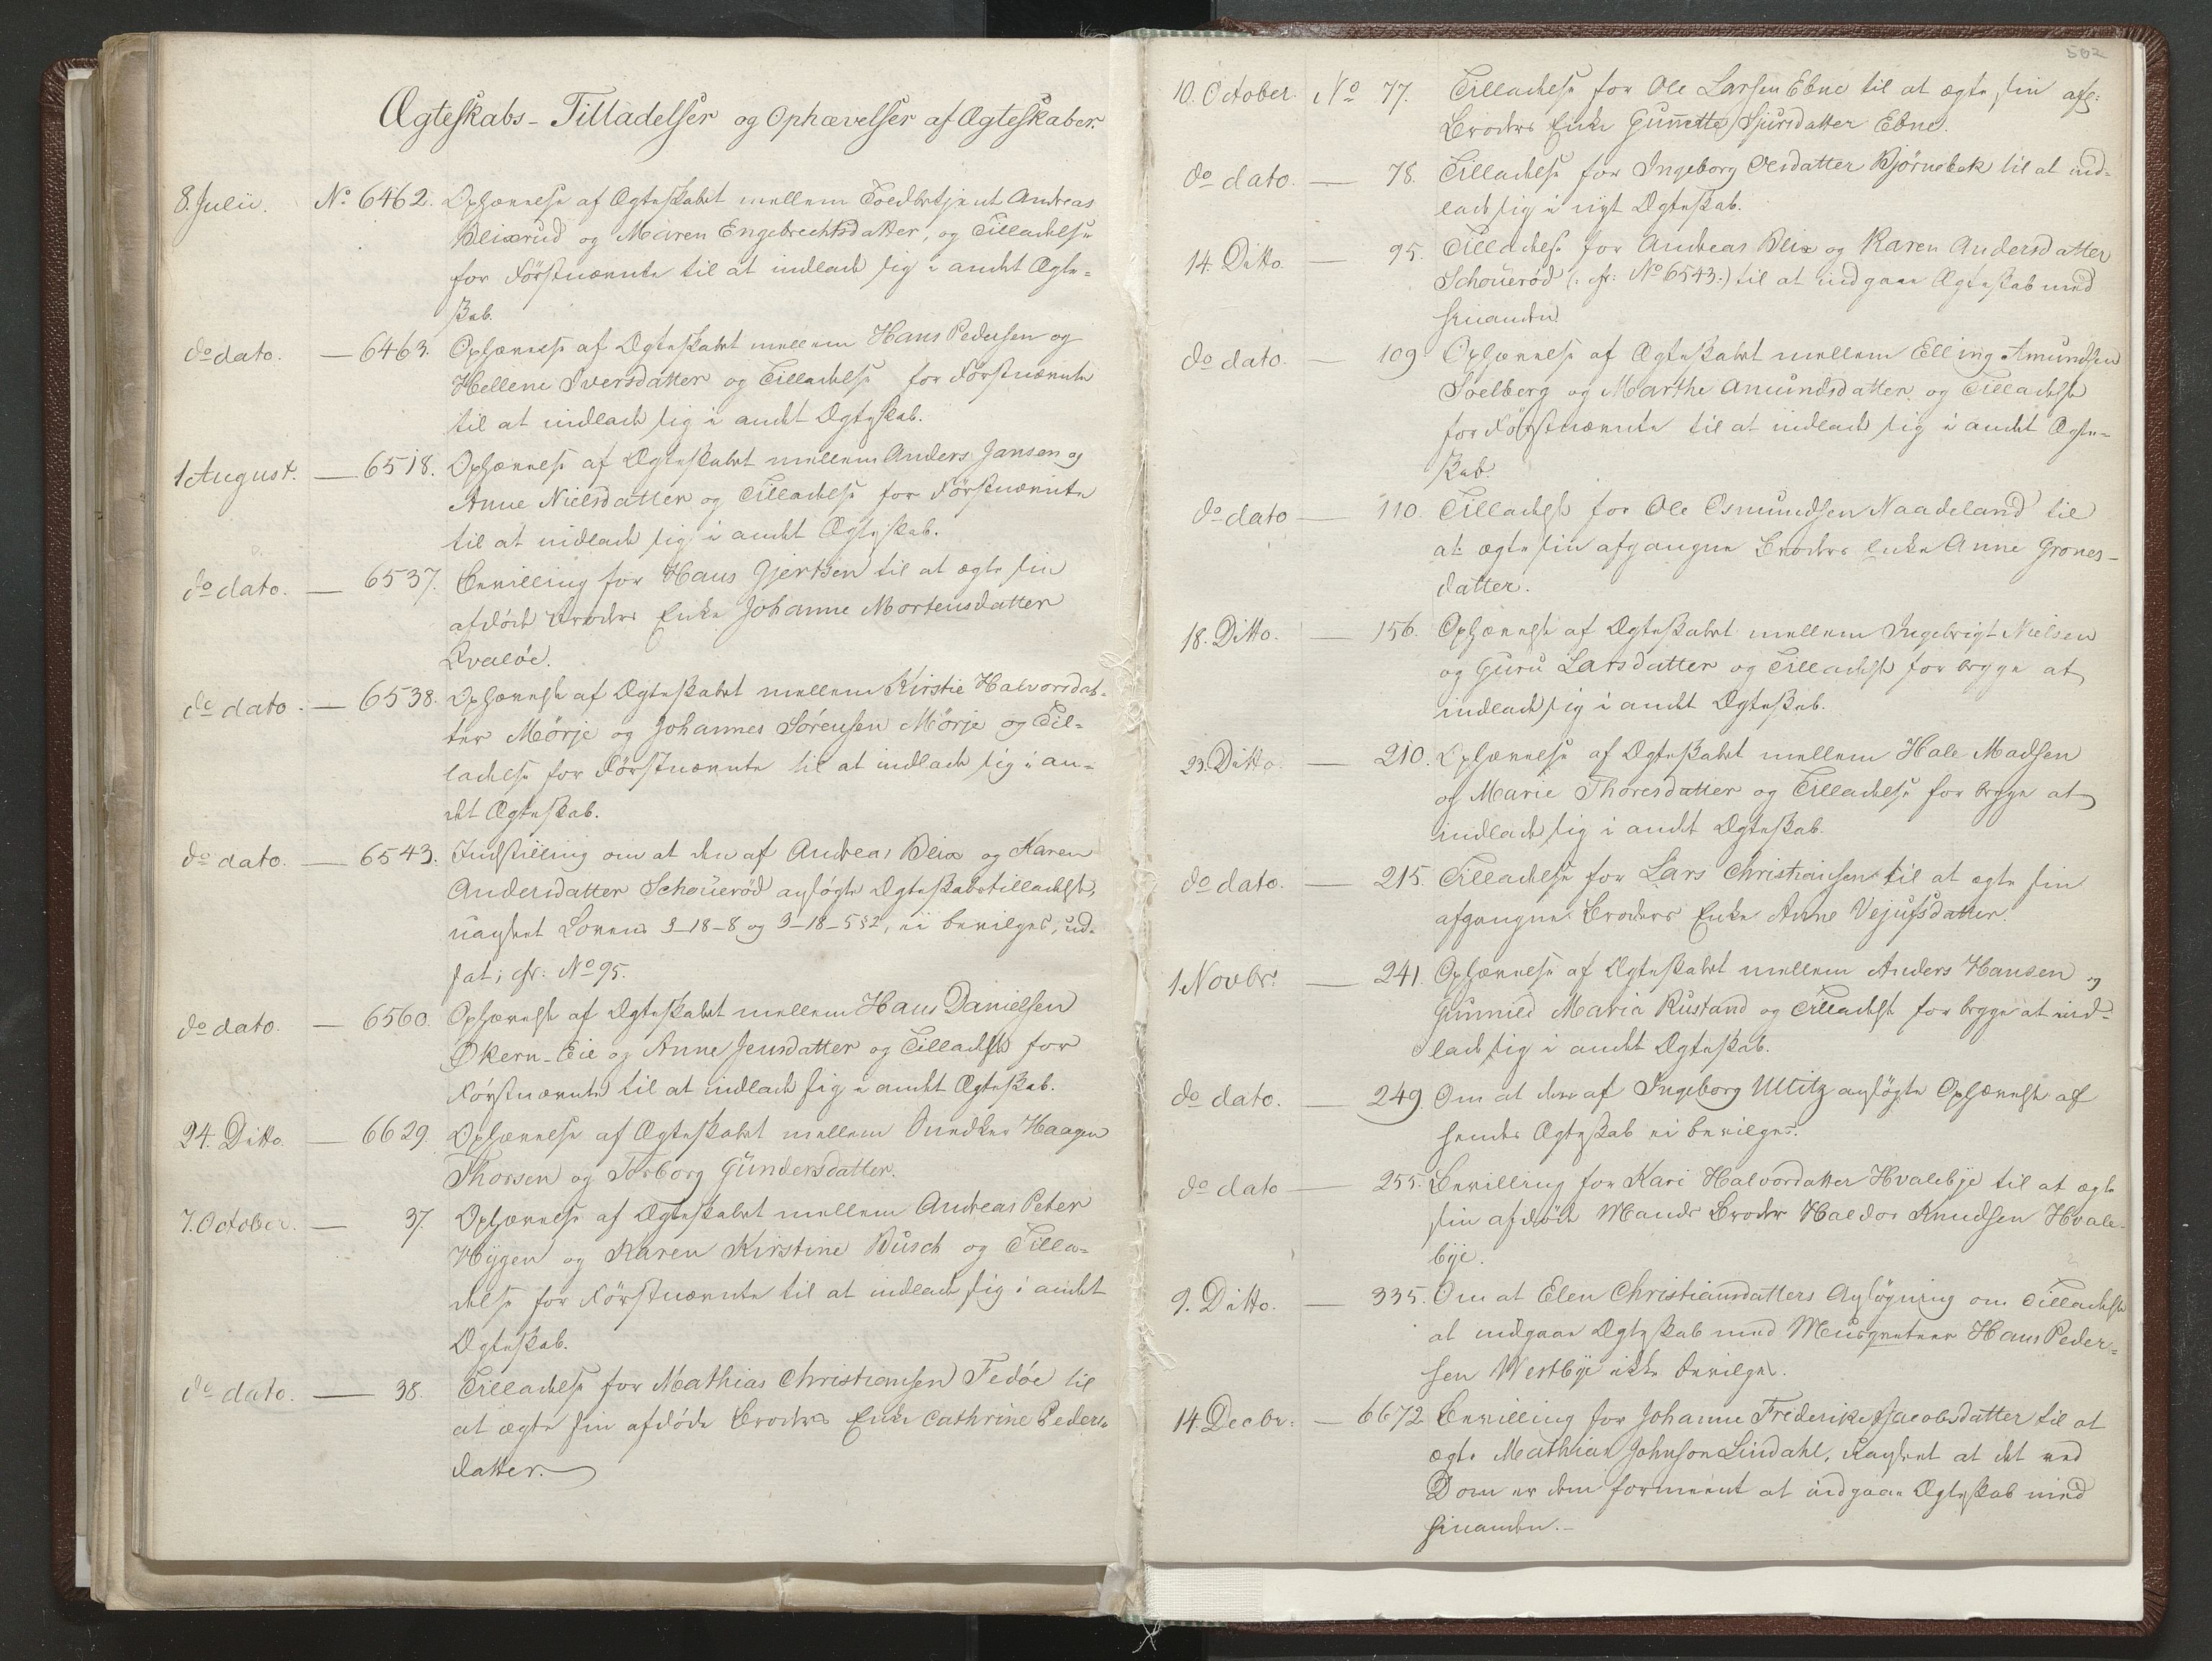 Ægteskabs-Tilladelser og Ophævelser af Ægteskaber.
8. Julii. No 6462. Ophævelse af Ægteskabet mellem Toldbetjent Andreas
Blixrud og Maren Engebrechtsdatter, og Tilladelse
for Førstnævnte til at indlade sig i andet Ægte-
skab.
do dato. — 6463. Ophævelse af Ægteskabet mellem Hans Pedersen og
Hellene Iversdatter og Tilladelse for Førstnævnte
til at indlade sig i andet Ægteskab.
1 August. — 6518. Ophævelse af Ægteskabet mellem Anders Jansen og
Anne Nielsdatter og Tilladelse for Førstnævnte
til at indlade sig i andet Ægteskab.
do dato. — 6537. Bevilling for Hans Gjertsen til at ægte sin
afdøde Broders Enke Johanne Mortensdatter
Qvaløe.
do dato. — 6538. Ophævelse af Ægteskabet mellem Kirstie Halvorsdat-
ter Mörje og Johannes Sørensen Mörje og Til-
ladelse for Førstnævnte til at indlade sig i an-
det Ægteskab.
do dato. — 6543. Indstilling om at den af Andreas Blix og Karen
Andersdatter Schouerød ansøgte Ægteskabstilladelse,
uagtet Lovens 3-18-8 og 3-18-5§2, ei bevilges, ud-
sat; cfr: No 95.
do dato. — 6560. Ophævelse af Ægteskabet mellem Hans Danielsen
Økern-Eie og Anne Jensdatter og Tilladelse for
Førstnævnte til at indlade sig i andet Ægteskab.
24. Ditto. — 6629. Ophævelse af Ægteskabet mellem Snedker Haagen
Thorsen og Torborg Gundersdatter.
7. October. — 37. Ophævelse af Ægteskabet mellem Andreas Peter
Hygen og Karen Kirstine Busch og Tilla-
delse for Førstnævnte til at indlade sig i andet
Ægteskab.
do dato. — 38. Tilladelse for Mathias Christiansen Fedøe til
at ægte sin afdøde Broders Enke Cathrine Peders-
datter.
502
10. October. No 77. Tilladelse for Ole Larsen Ebne til at ægte sin afg:
Broders Enke Gunette Sjursdatter Ebne.
do dato. — 78. Tilladelse for Ingeborg Olsdatter Bjørnebek til at ind-
lade sig i nyt Ægteskab.
14. Ditto. — 95. Tilladelse for Andreas Blix og Karen Andersdatter
Schouerød (: cfr: No 6543:) til at indgaae Ægteskab med
hinanden.
do dato. — 109. Ophævelse af Ægteskabet mellem Elling Amundsen
Soelberg og Marthe Amundsdatter og Tilladelse
for Førstnævnte til at indlade sig i andet Ægte-
skab.
do dato — 110. Tilladelse for Ole Osmundsen Naadeland til
at ægte sin afgangne Broders Enke Anne Grones-
datter.
18. Ditto. — 156. Ophævelse af Ægteskabet mellem Ingebrigt Nielsen
og Guru Larsdatter og Tilladelse for begge at
indlade sig i andet Ægteskab.
23. Ditto. — 210. Ophævelse af Ægteskabet mellem Hale Madsen
og Marie Thoresdatter og Tilladelse for begge at
indlade sig i andet Ægteskab.
do dato. — 215. Tilladelse for Lars Christiansen til at ægte sin
afgangne Broders Enke Anne Vejulsdatter.
1. Novbr. — 241. Ophævelse af Ægteskabet mellem Anders Hansen og
Gunnild Maria Rustand og Tilladelse for begge at ind-
lade sig i andet Ægteskab.
do dato. — 249. Om at den af Ingeborg Ulitz ansøgte Ophævelse af
hendes Ægteskab ei bevilges.
do dato — 255. Bevilling for Kari Halvordatter Hvalebye til at ægte
sin afdøde Mands Broder Haldor Knudsen Hvale-
bye.
9. Ditto. — 335. Om at Elen Christiansdatters Ansøgning om Tilladelse
at indgaae Ægteskab med Musqueteer Hans Peder-
sen Westbye ikke bevilges.
14. Decbr. — 6672 Bevilling for Johanne Friderike Jacobsdatter til at
ægte Mathias Johnson Lindahl, uagtet at det ved
Dom er dem formeent at indgaae Ægteskab med
hinanden.-